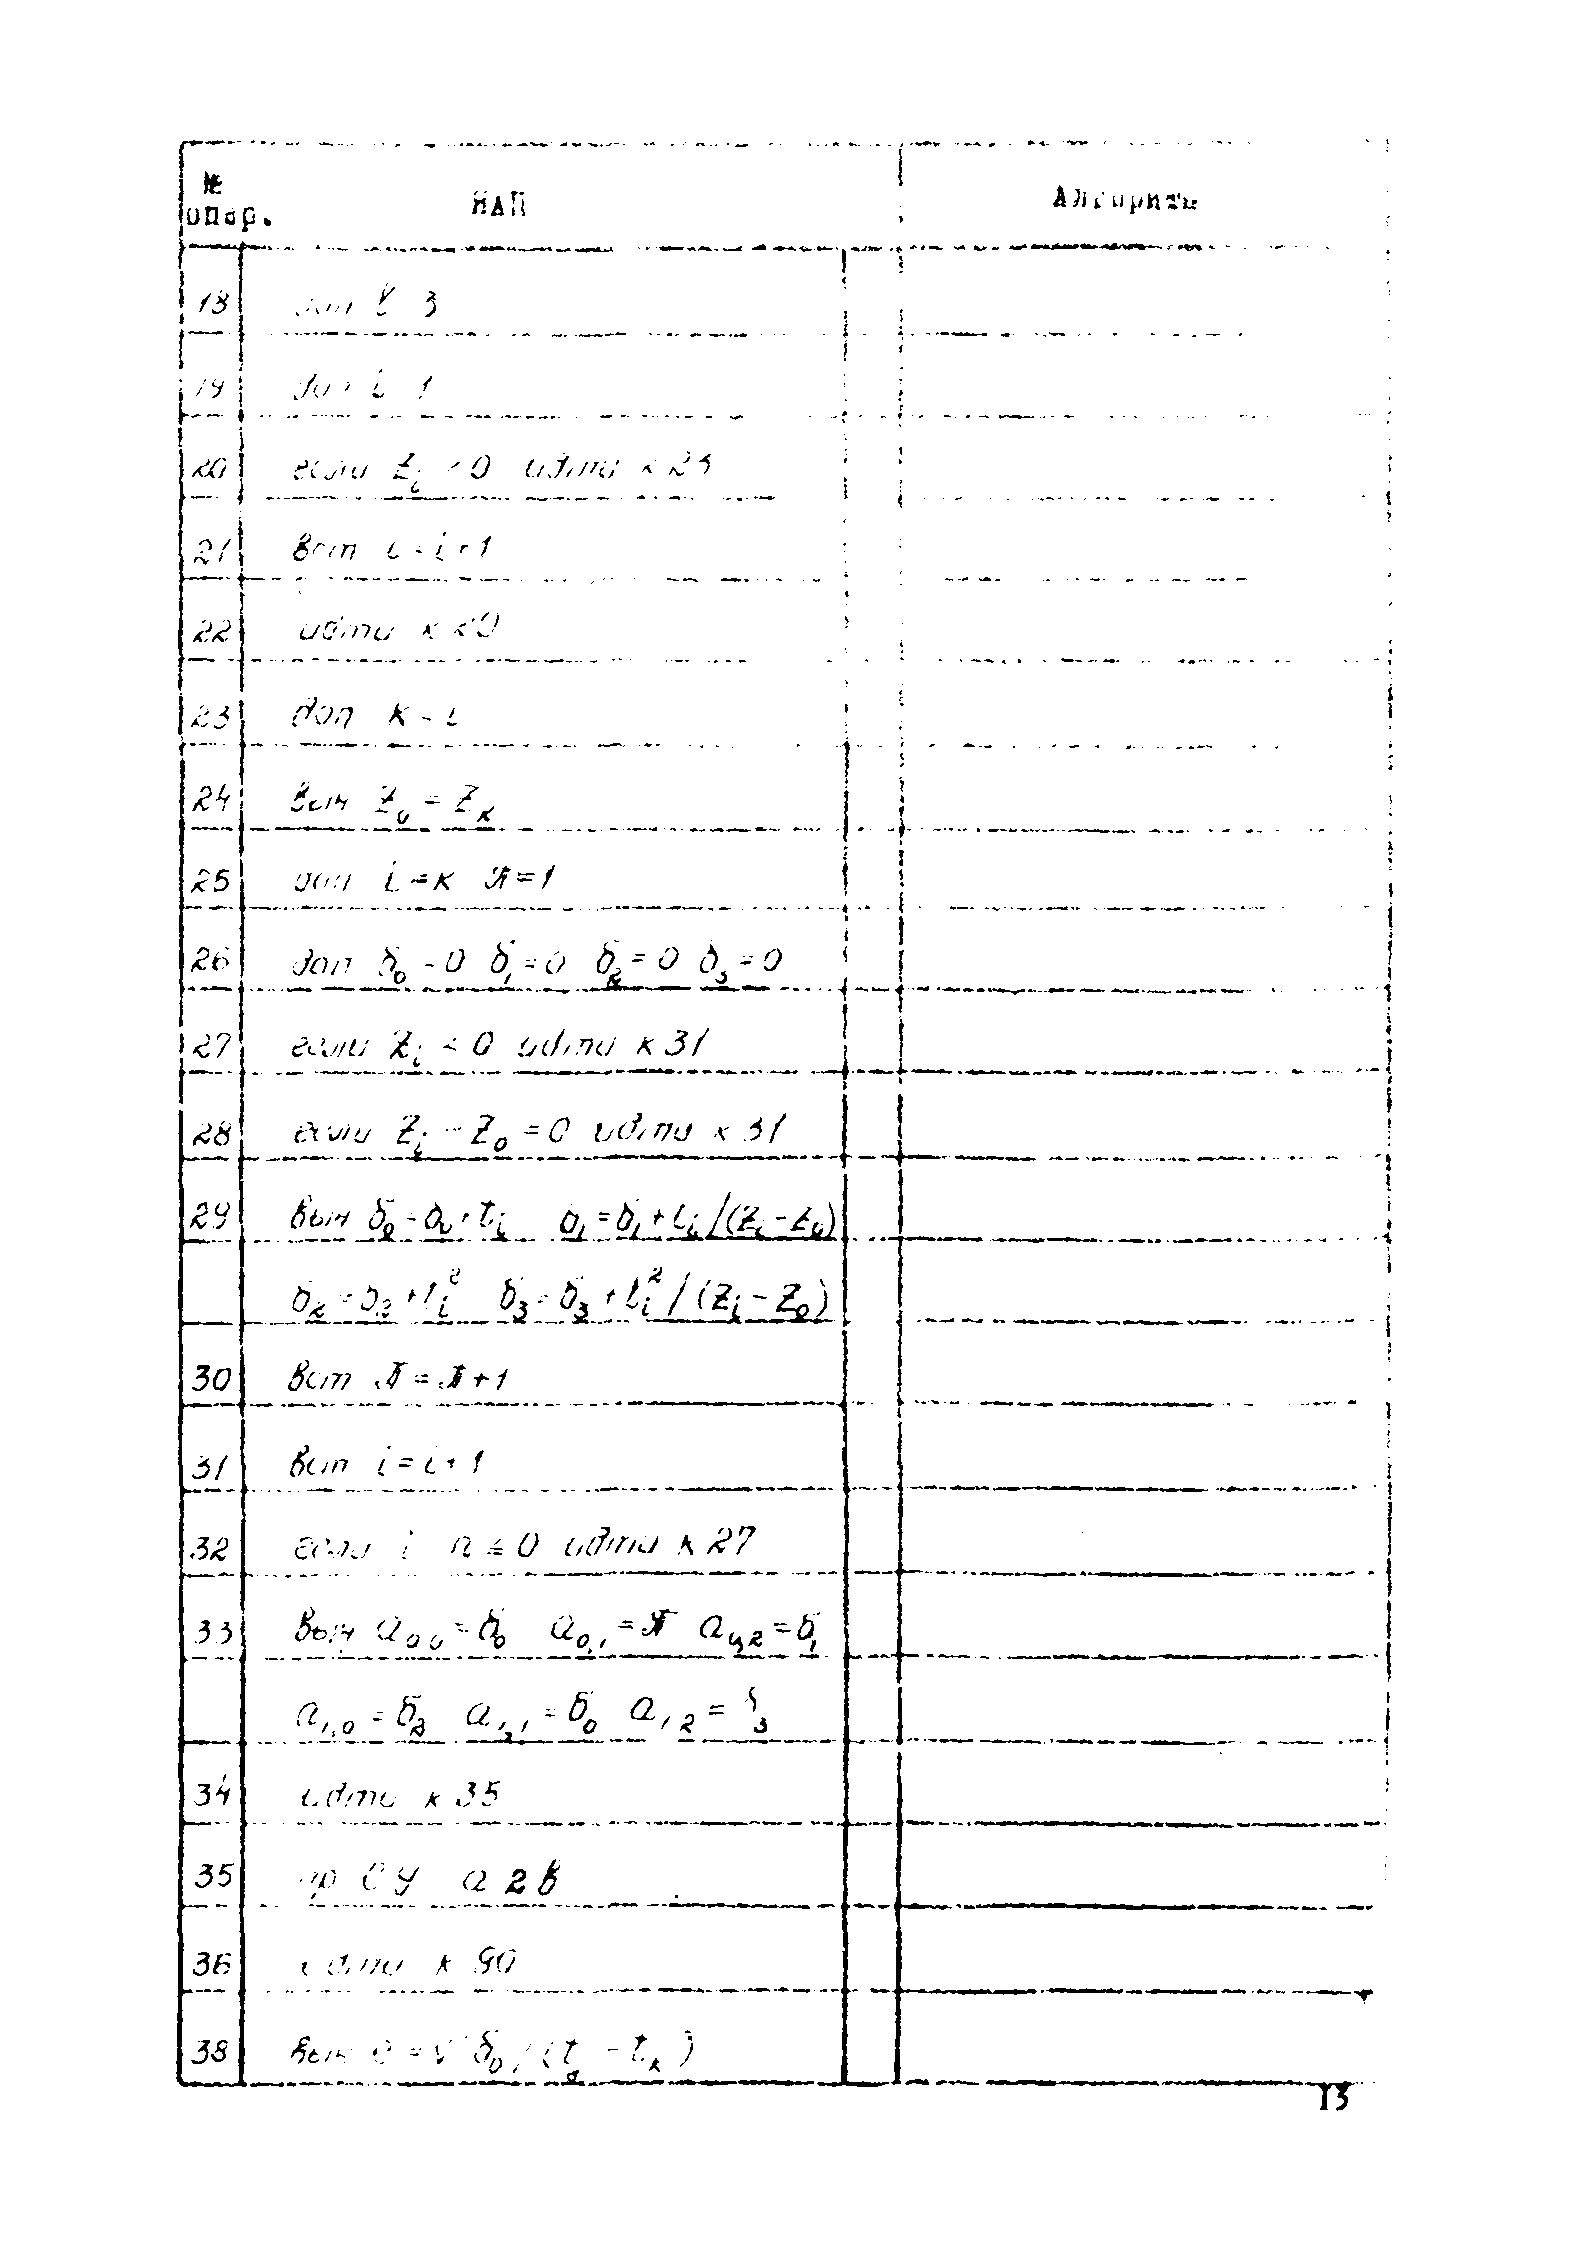 № опер. НАП Алгоритм
18 доп 3
19 доп i 1
20 если Z_i < 0 идти к 23
21 вст i = i + 1
22 идти к 20
23 доп к = i
24 выч Z_0 = Z_к
25 доп i = к Л = 1
26 доп б_0 = 0 б_1 = 0 б_2 = 0 б_3 = 0
27 если Z_i < 0 идти к 31
28 если Z_i - Z_0 = 0 идти к 31
29 выч б_0 = б_0 + t_i б_1 = б_1 + t_i /(Z_i - Z_0)
б_2 = б_2 + t_i^2 б_3 = б_3 + t_i^2 / (Z_i - Z_0)
30 вст Л = Л + 1
31 вст i = i + 1
32 если i n ≤ 0 идти к 27
33 выч a_0,0 = б_0 a_0,1 = Л a_0,2 = б_1
a_1,0 = б_2 a_1,1 = б_0 a_1,2 = б_3
34 идти к 35
35 пр СУ a 2 в
36 идти к 90
38 выч б_0 / (t - t_к)
13